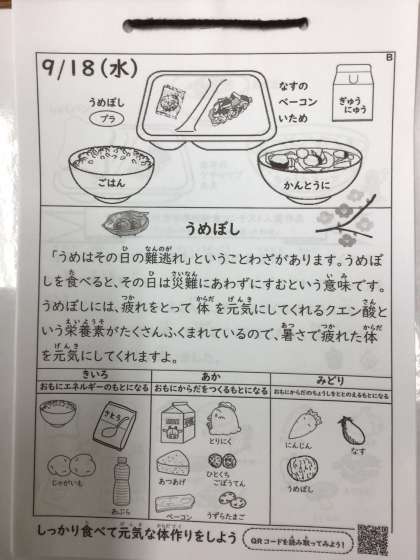 9/18(水)
B
うめぼし
プラ
なすの
ベーコン
いため
ぎゅう
にゅう
ごはん
かんとうに
うめぼし
「うめはその日の難逃れ」ということわざがあります。うめぼ
しを食べると、その日は災難にあわずにすむという意味です。
うめぼしには、疲れをとって体を元気にしてくれるクエン酸と
いう栄養素がたくさんふくまれているので、暑さで疲れた体
を元気にしてくれますよ。
きいろ
おもにエネルギーのもとになる
あか
おもにからだをつくるもとになる
みどり
おもにからだのちょうしをととのえるもとになる
さとう
じゃがいも
あぶら
とりにく
あつあげ
ひとくち
ごぼうてん
ベーコン
うずらたまご
にんじん
なす
うめぼし
しっかり食べて元気な体作りをしよう
QRコードを読み取ってみよう!